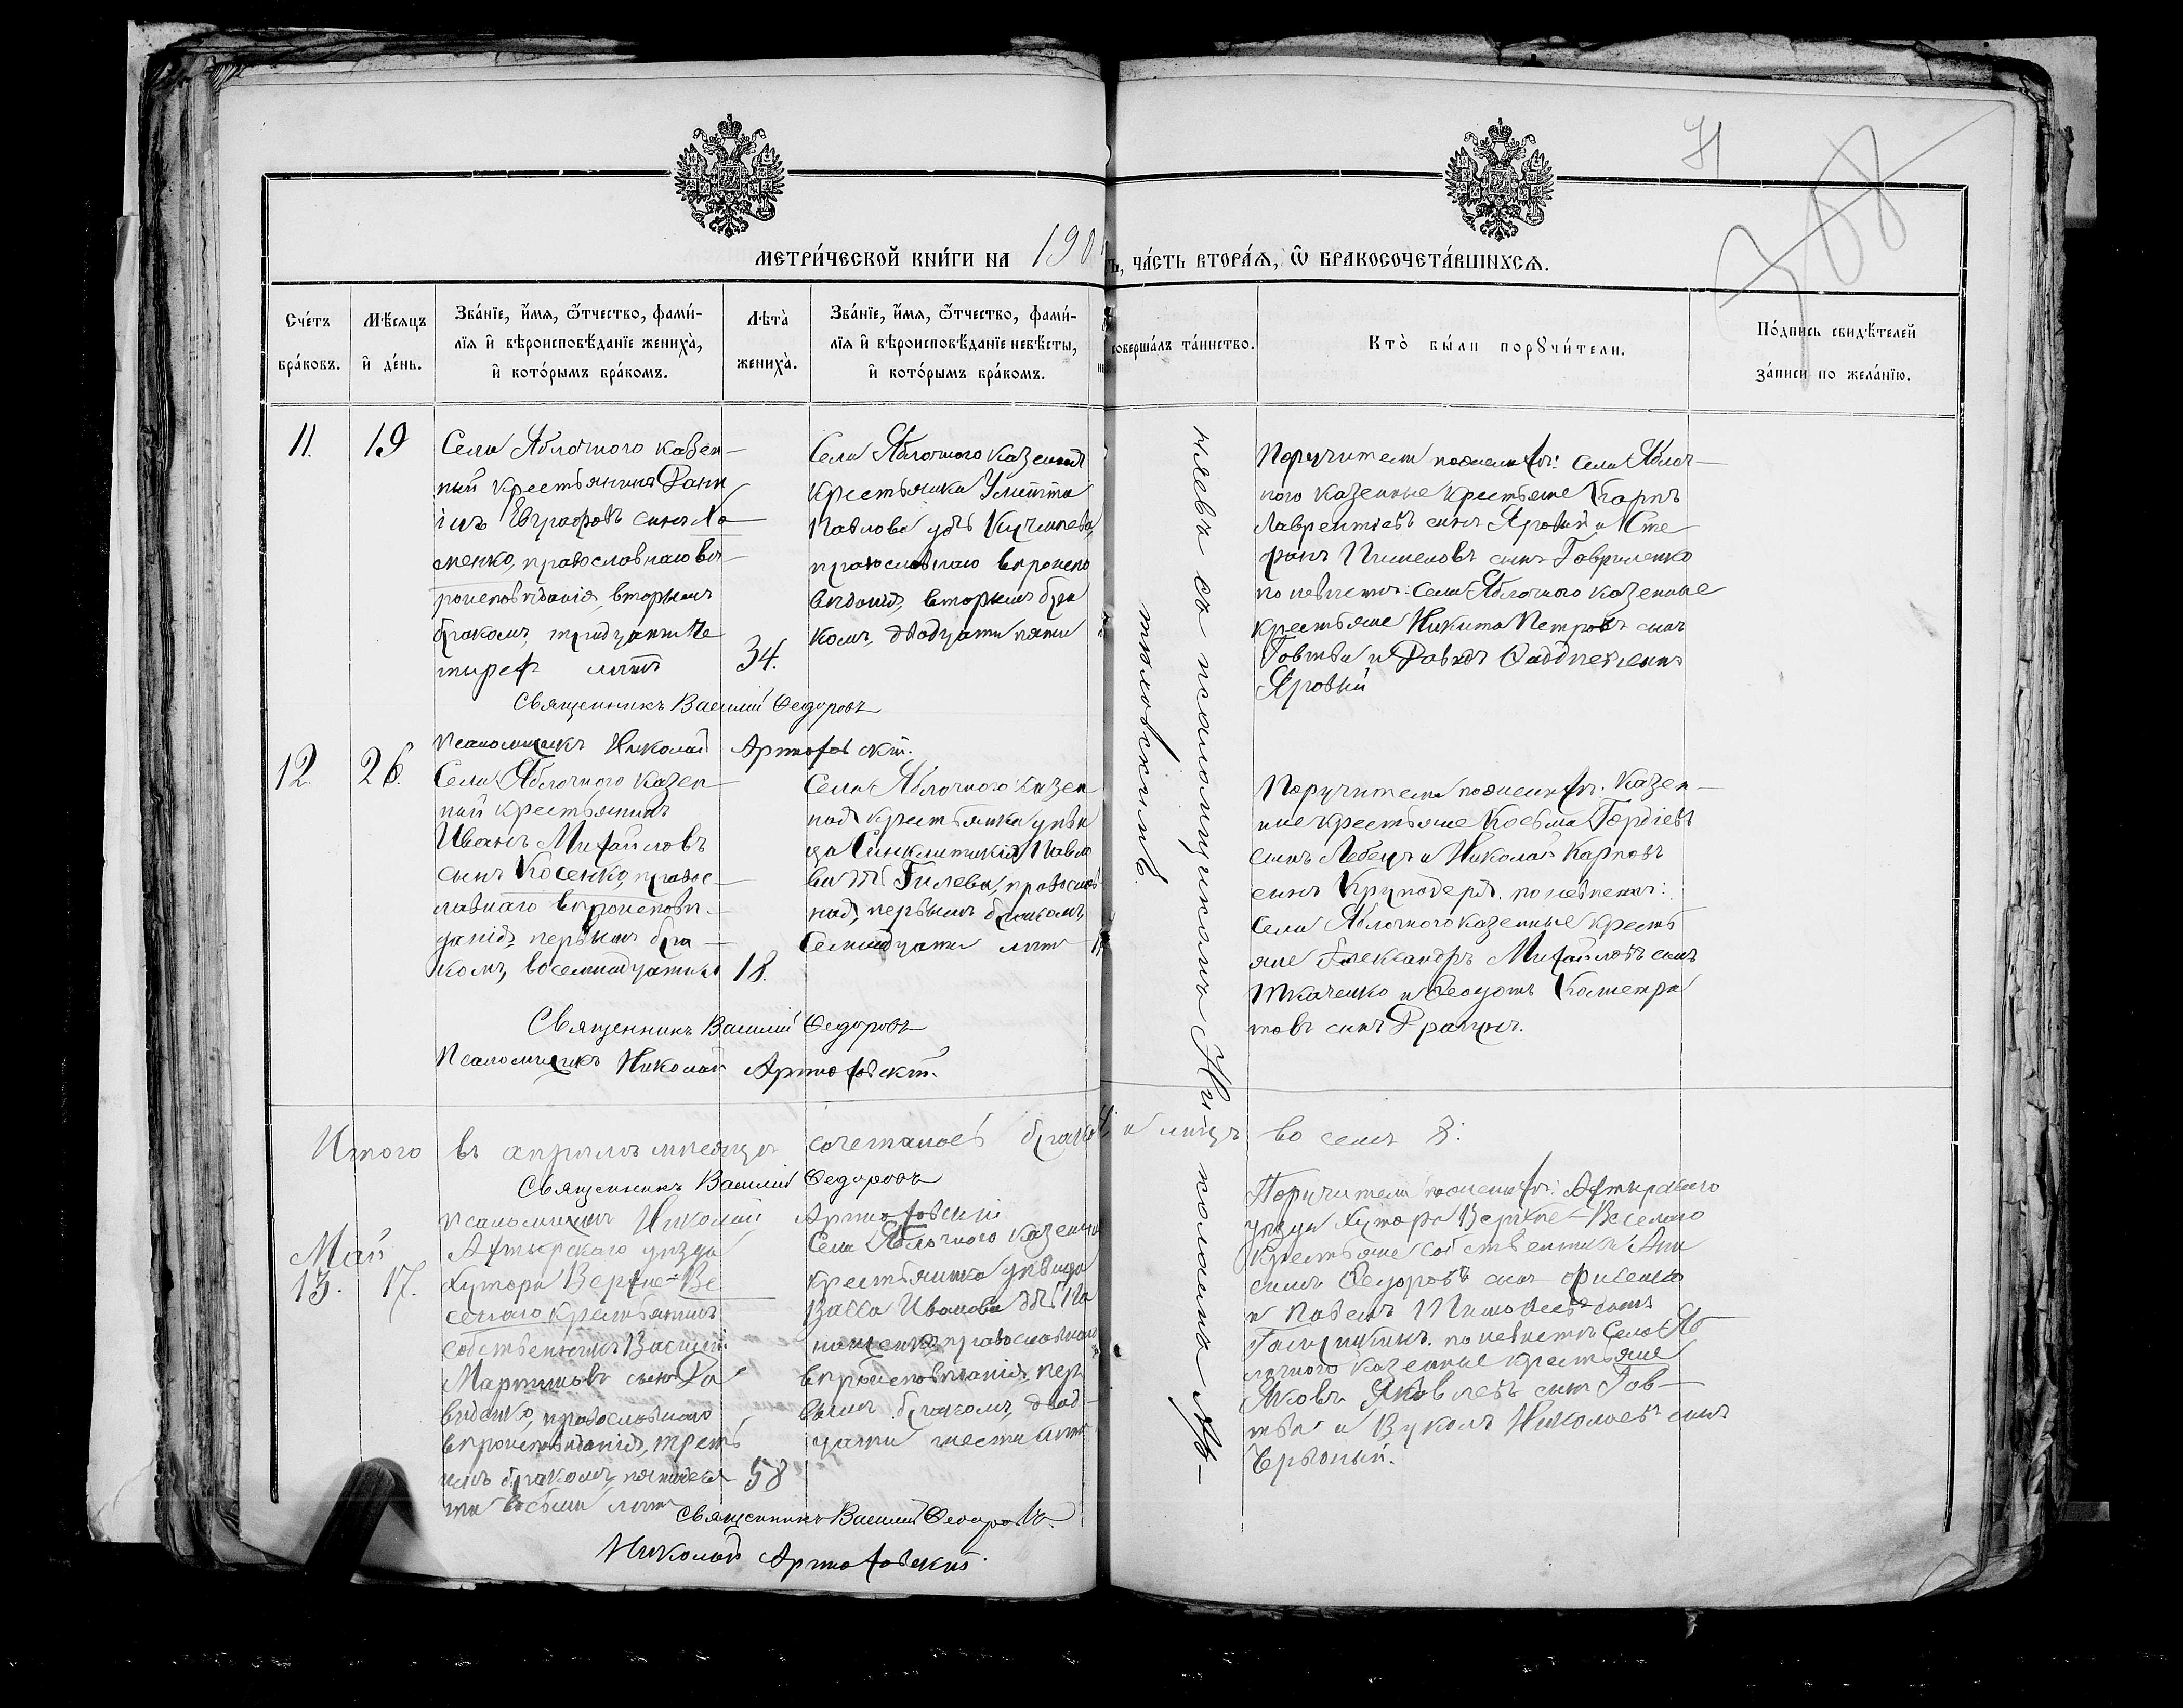 71
388
МЕТРИ́ЧЕСКОЙ КНИ́ГИ НА 190
Ъ, ЧА́СТЬ ВТОРА́Ѧ, Ѽ БРАКОСОЧЕТА́ВШИХСѦ.
Сче́тъ бра́ковъ.
Мѣ́сяцъ и҆ де́нь.
Зва́нїе, и҆́мя, ѻ҆́тчество, фами́-
лїя и҆ вѣроисповѣ́данїе жениха̀,
и҆ кото́рымъ бра́комъ.
Лѣта̀ жениха̀.
Зва́нїе, и҆́мя, ѻ҆́тчество, фами́-
лїя и҆ вѣроисповѣ́данїе невѣ́сты,
и҆ кото́рымъ бра́комъ.
соверша́лъ та́инство.
Кто̀ бы́ли порꙋчи́тели.
По́дпись свидѣ́телей
за́писи по жела́нїю.
11.
19
Села Яблочнаго казен-
ный крестьянинъ Дани
илъ Евграфовъ сынъ Ло
менко, православнаго вѣ-
роисповѣданія, вторымъ
бракомъ, тридцати че
тырехъ лѣтъ
34.
Села Яблочнаго казенная
крестьянка Улитта
Павлова
православнаго вѣроиспо
вѣданія, вторымъ бра
комъ, двадцати пяти
Поручители по женихѣ: села Яблоч-
наго казенные крестьяне Карпъ
Лаврентіевъ сынъ Яровый и Сте
фанъ Пименовъ сынъ Гавриленко
по невѣстѣ: села Яблочнаго казенные
крестьяне Никита Петровъ сынъ
Говтва и Давидъ Фаддеевъ сынъ
Яровый
Священникъ Василий Федоровъ
Псаломщикъ Николай Артюховскій.
12.
26.
Села Яблочнаго казен-
ный крестьянинъ
Иванъ Михайловъ
сынъ Косенко, правос-
лавнаго вѣроисповѣ-
данія, первымъ бра-
комъ, восемнадцати
18.
Села Яблочнаго казен
ная крестьянка дѣви
ца Синклитикія Павло
ва Гилева, православ
ная, первымъ бракомъ,
Семнадцати лѣтъ
Поручители по женихѣ: казен-
ные крестьяне Косьма Гордіевъ
сынъ Лебедь и Николай Карповъ
сынъ Круподеря. по невѣстѣ:
села Яблочнаго казенные кресть
яне Александръ Михайловъ сынъ
Ткаченко и Феодотъ Калистра
товъ сынъ Драгунъ.
Священникъ Василий Федоровъ
Псаломщикъ Николай Артюховскій.
съ псаломщикомъ Николаемъ Ар-
тюховскимъ.
Итого въ апрѣлѣ мѣсяцѣ сочеталось браковъ 4, и лицъ восемь 8.
Священникъ Василий Федоровъ
Псаломщикъ Николай Артюховскій
Май
13.
17.
Ахтырскаго уѣзда
хутора Верхне-Ве
селаго крестьянинъ
собственникъ Василий
Мартиновъ сынъ Да
виденко, православнаго
вѣроисповѣданія, треть
имъ бракомъ, пятидеся
ти восьми лѣтъ
58
Села Яблочнаго казенная
крестьянка дѣвица
Васса Иванова
православнаго
вѣроисповѣданія, пер
вымъ бракомъ, двад-
цати шести лѣтъ
Поручители по женихѣ: Ахтырскаго
уѣзда хутора Верхне-Веселаго
крестьяне собственники Они
симъ Федоровъ сынъ
и Павелъ Тимофеевъ сынъ
по невѣстѣ села Яб
лочнаго казенные крестьяне
Яковъ Яковлевъ сынъ Гов-
тва и Вуколъ Николаевъ сынъ
Червоный.
Священникъ Василий Федоровъ
Николай Артюховскій.